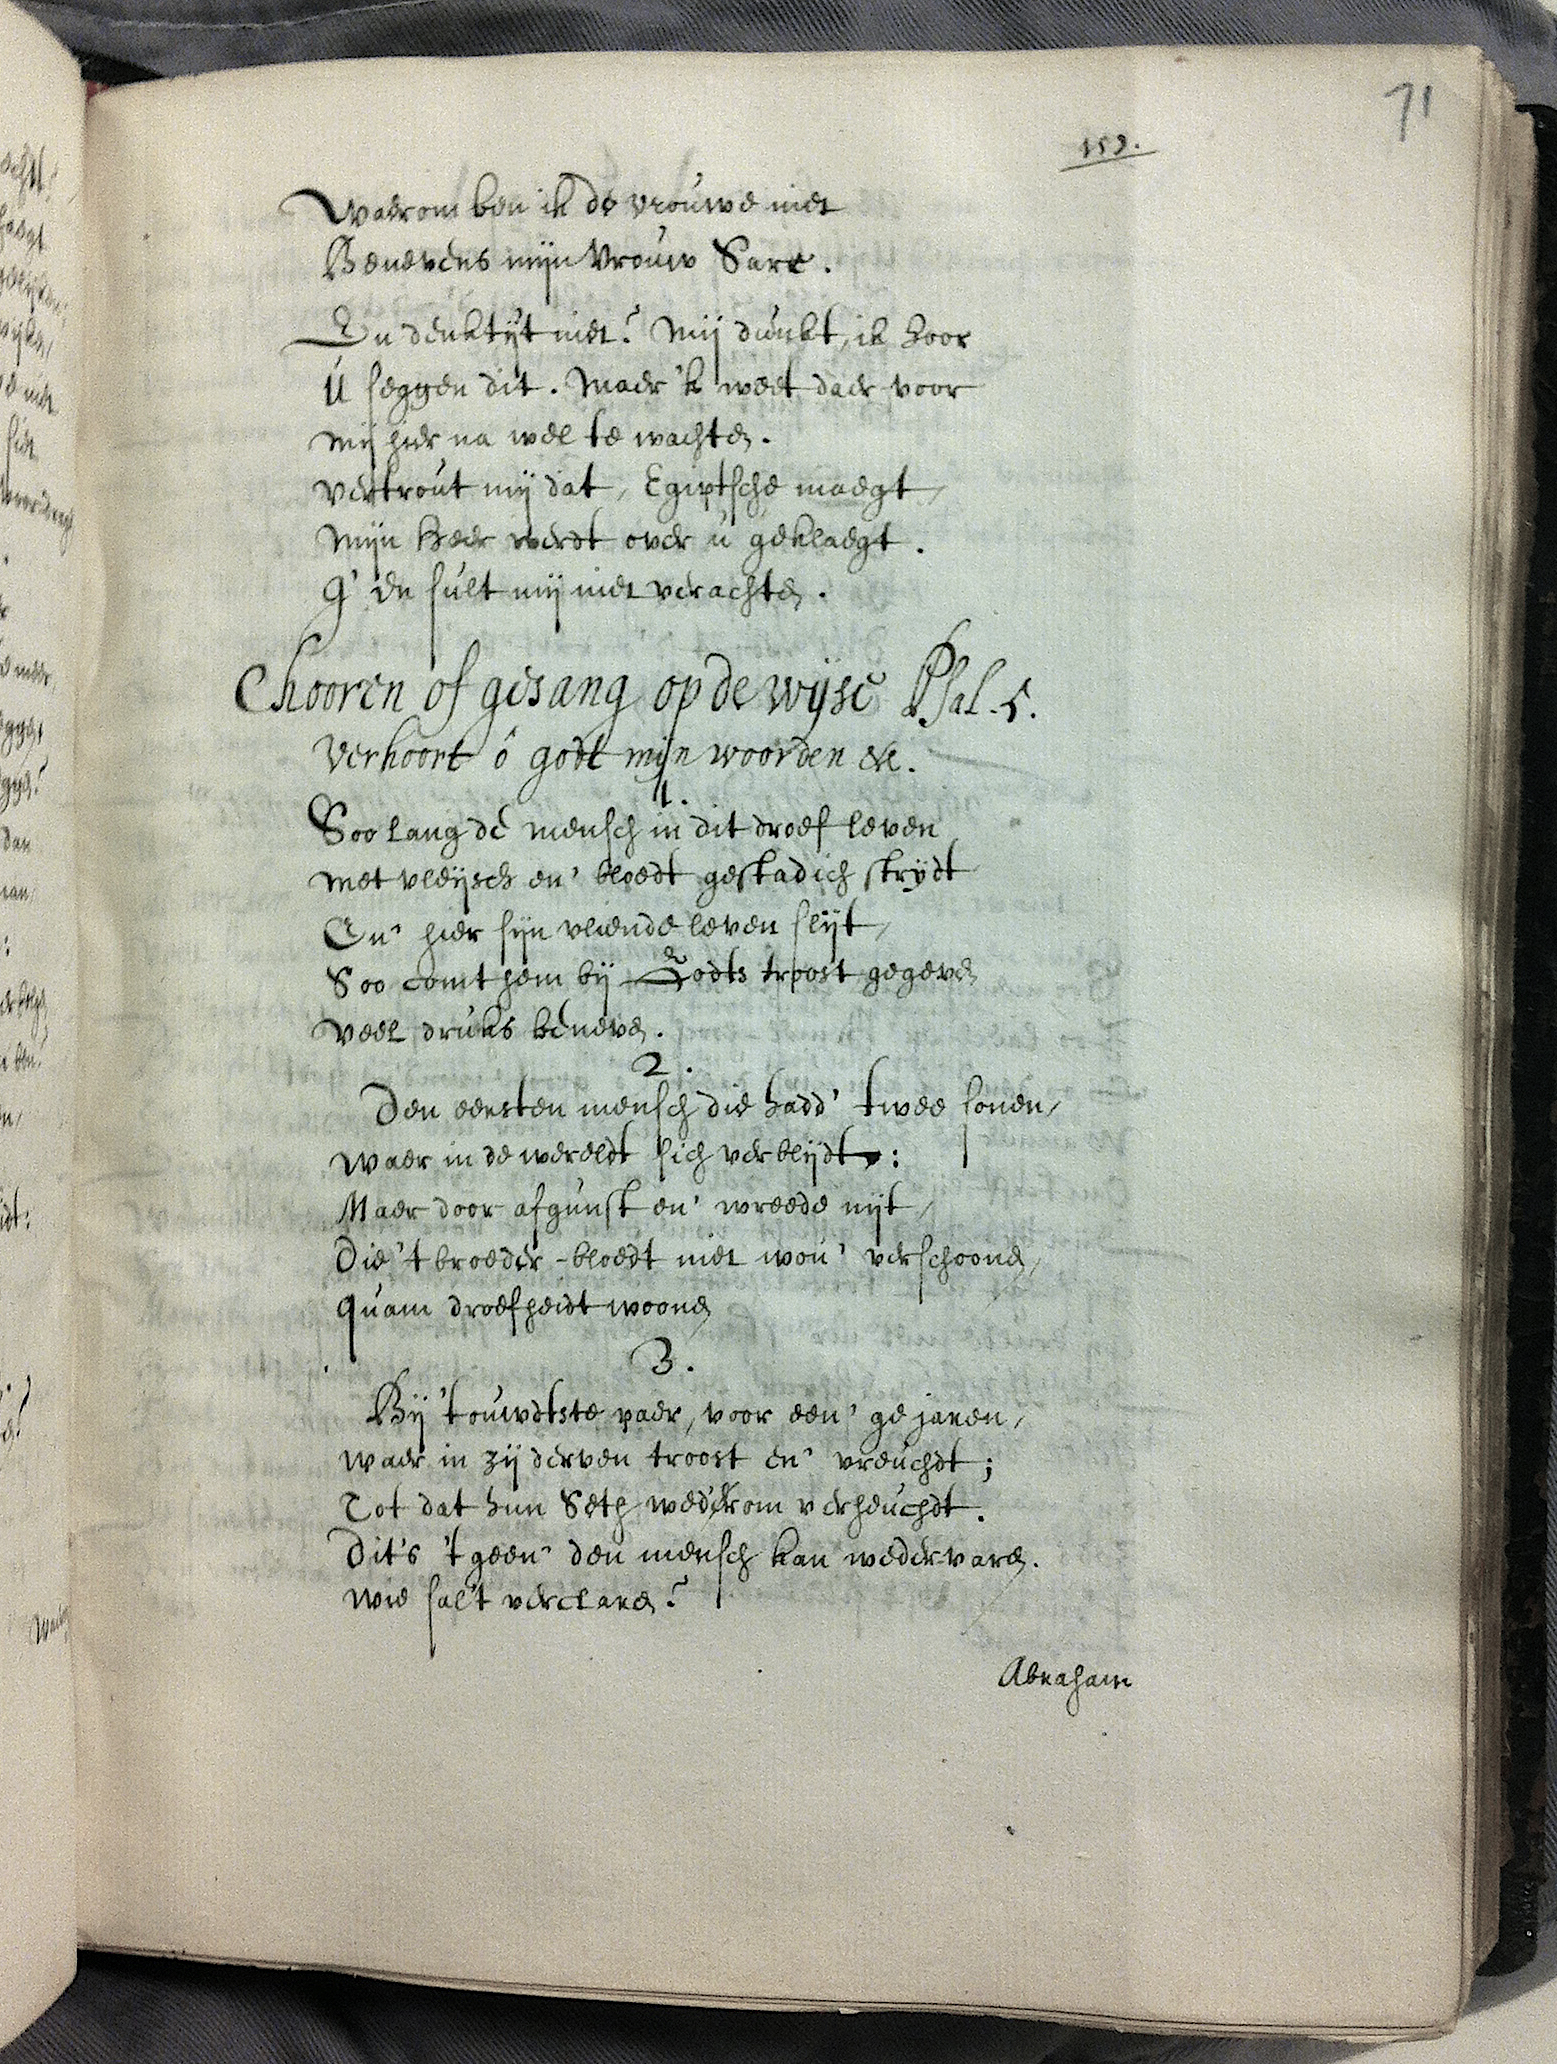 71
159.
Waerom ben ik de vrouwe niet
Benevens mijn Vrouw Sare.
En denktÿt niet? Mij dunkt, ik hoor
U seggen dit. Maer 'k weet daer voor
mij hier na wel te wachten.
vertrout mij dat, Egiptsche maegt,
Mijn Heer werdt over u geklaegt.
G' en sult mij niet verachten.
Chooren of gesang op de wijse Psal. 5.
Verhoort ô godt mijn woorden etc.
1.
Soo lang de mensch in dit droef leven
met vleijsch en' bloedt gestadich strijdt
En' hier sijn vliende leven slijt,
Soo comt hem bij Godts troost gegeven
veel druks beneven.
2.
Den eersten mensch die hadd' twee sonen,
waer in de wereldt sich verblijdt:
Maer door afgunst en' wreede nijt,
Die 't broeder-bloedt niet wou' verschoonen,
Quam droefheidt woonen
3.
Bij 't ouwdtste paer, voor een' ge jaren,
waer in zij derven troost en' vreuchdt;
Tot dat hun Seth wederom verheuchdt.
Dit's 't geen' den mensch kan wedervaren.
wie sal't verclaren?
Abraham